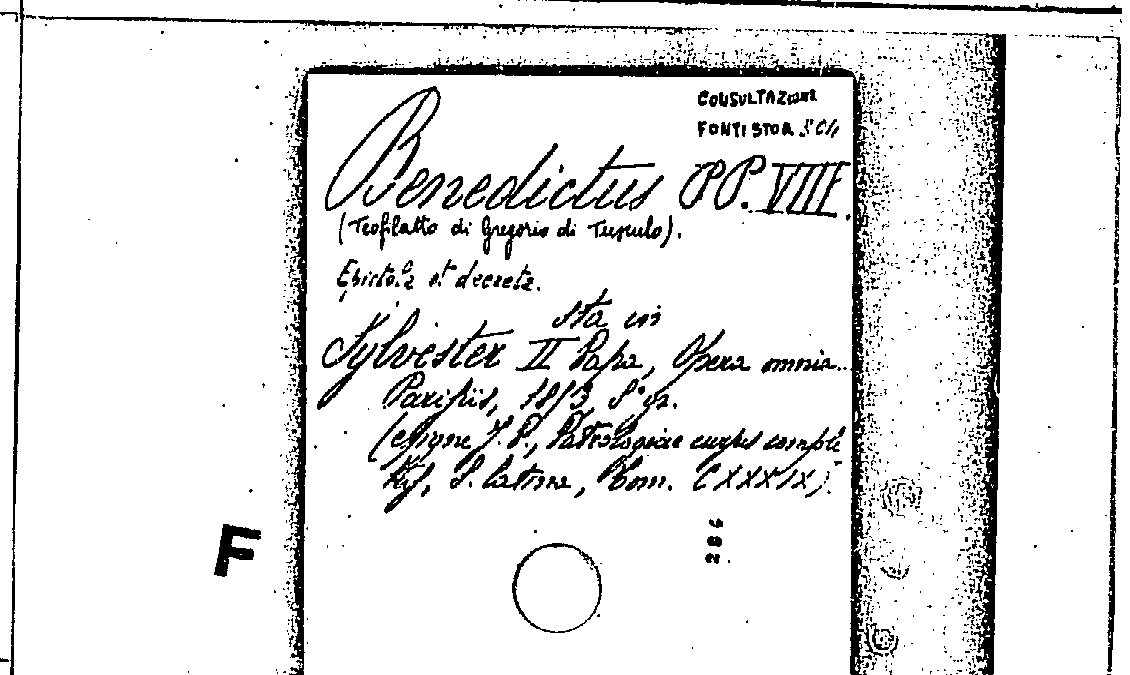 CONSULTAZIONE
FONTI STOR
Benedictus PP. VIII.
(Teofilatto di Gregorio di Tusculo).
Epistola et decreta.
Sta in
Sylvester II Papa, Opera omnia..
Parisiis, 1853, 8°
(Migne J. P., Patrologiae cursus comple
tus, S. latina, Tom. CXXXIX).
F
286